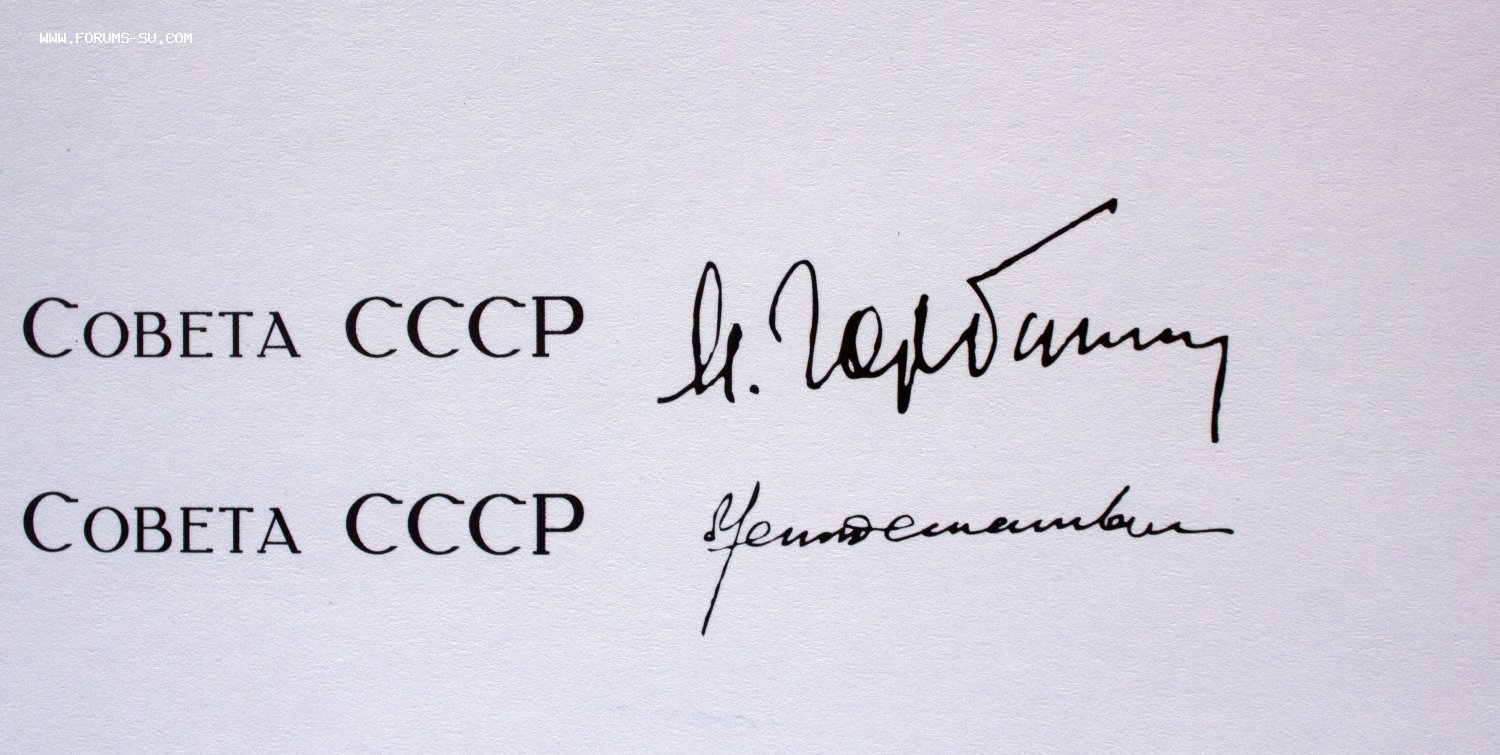 WWW.FORUMS-SU.COM
СОВЕТА СССР М. Горбачев
СОВЕТА СССР